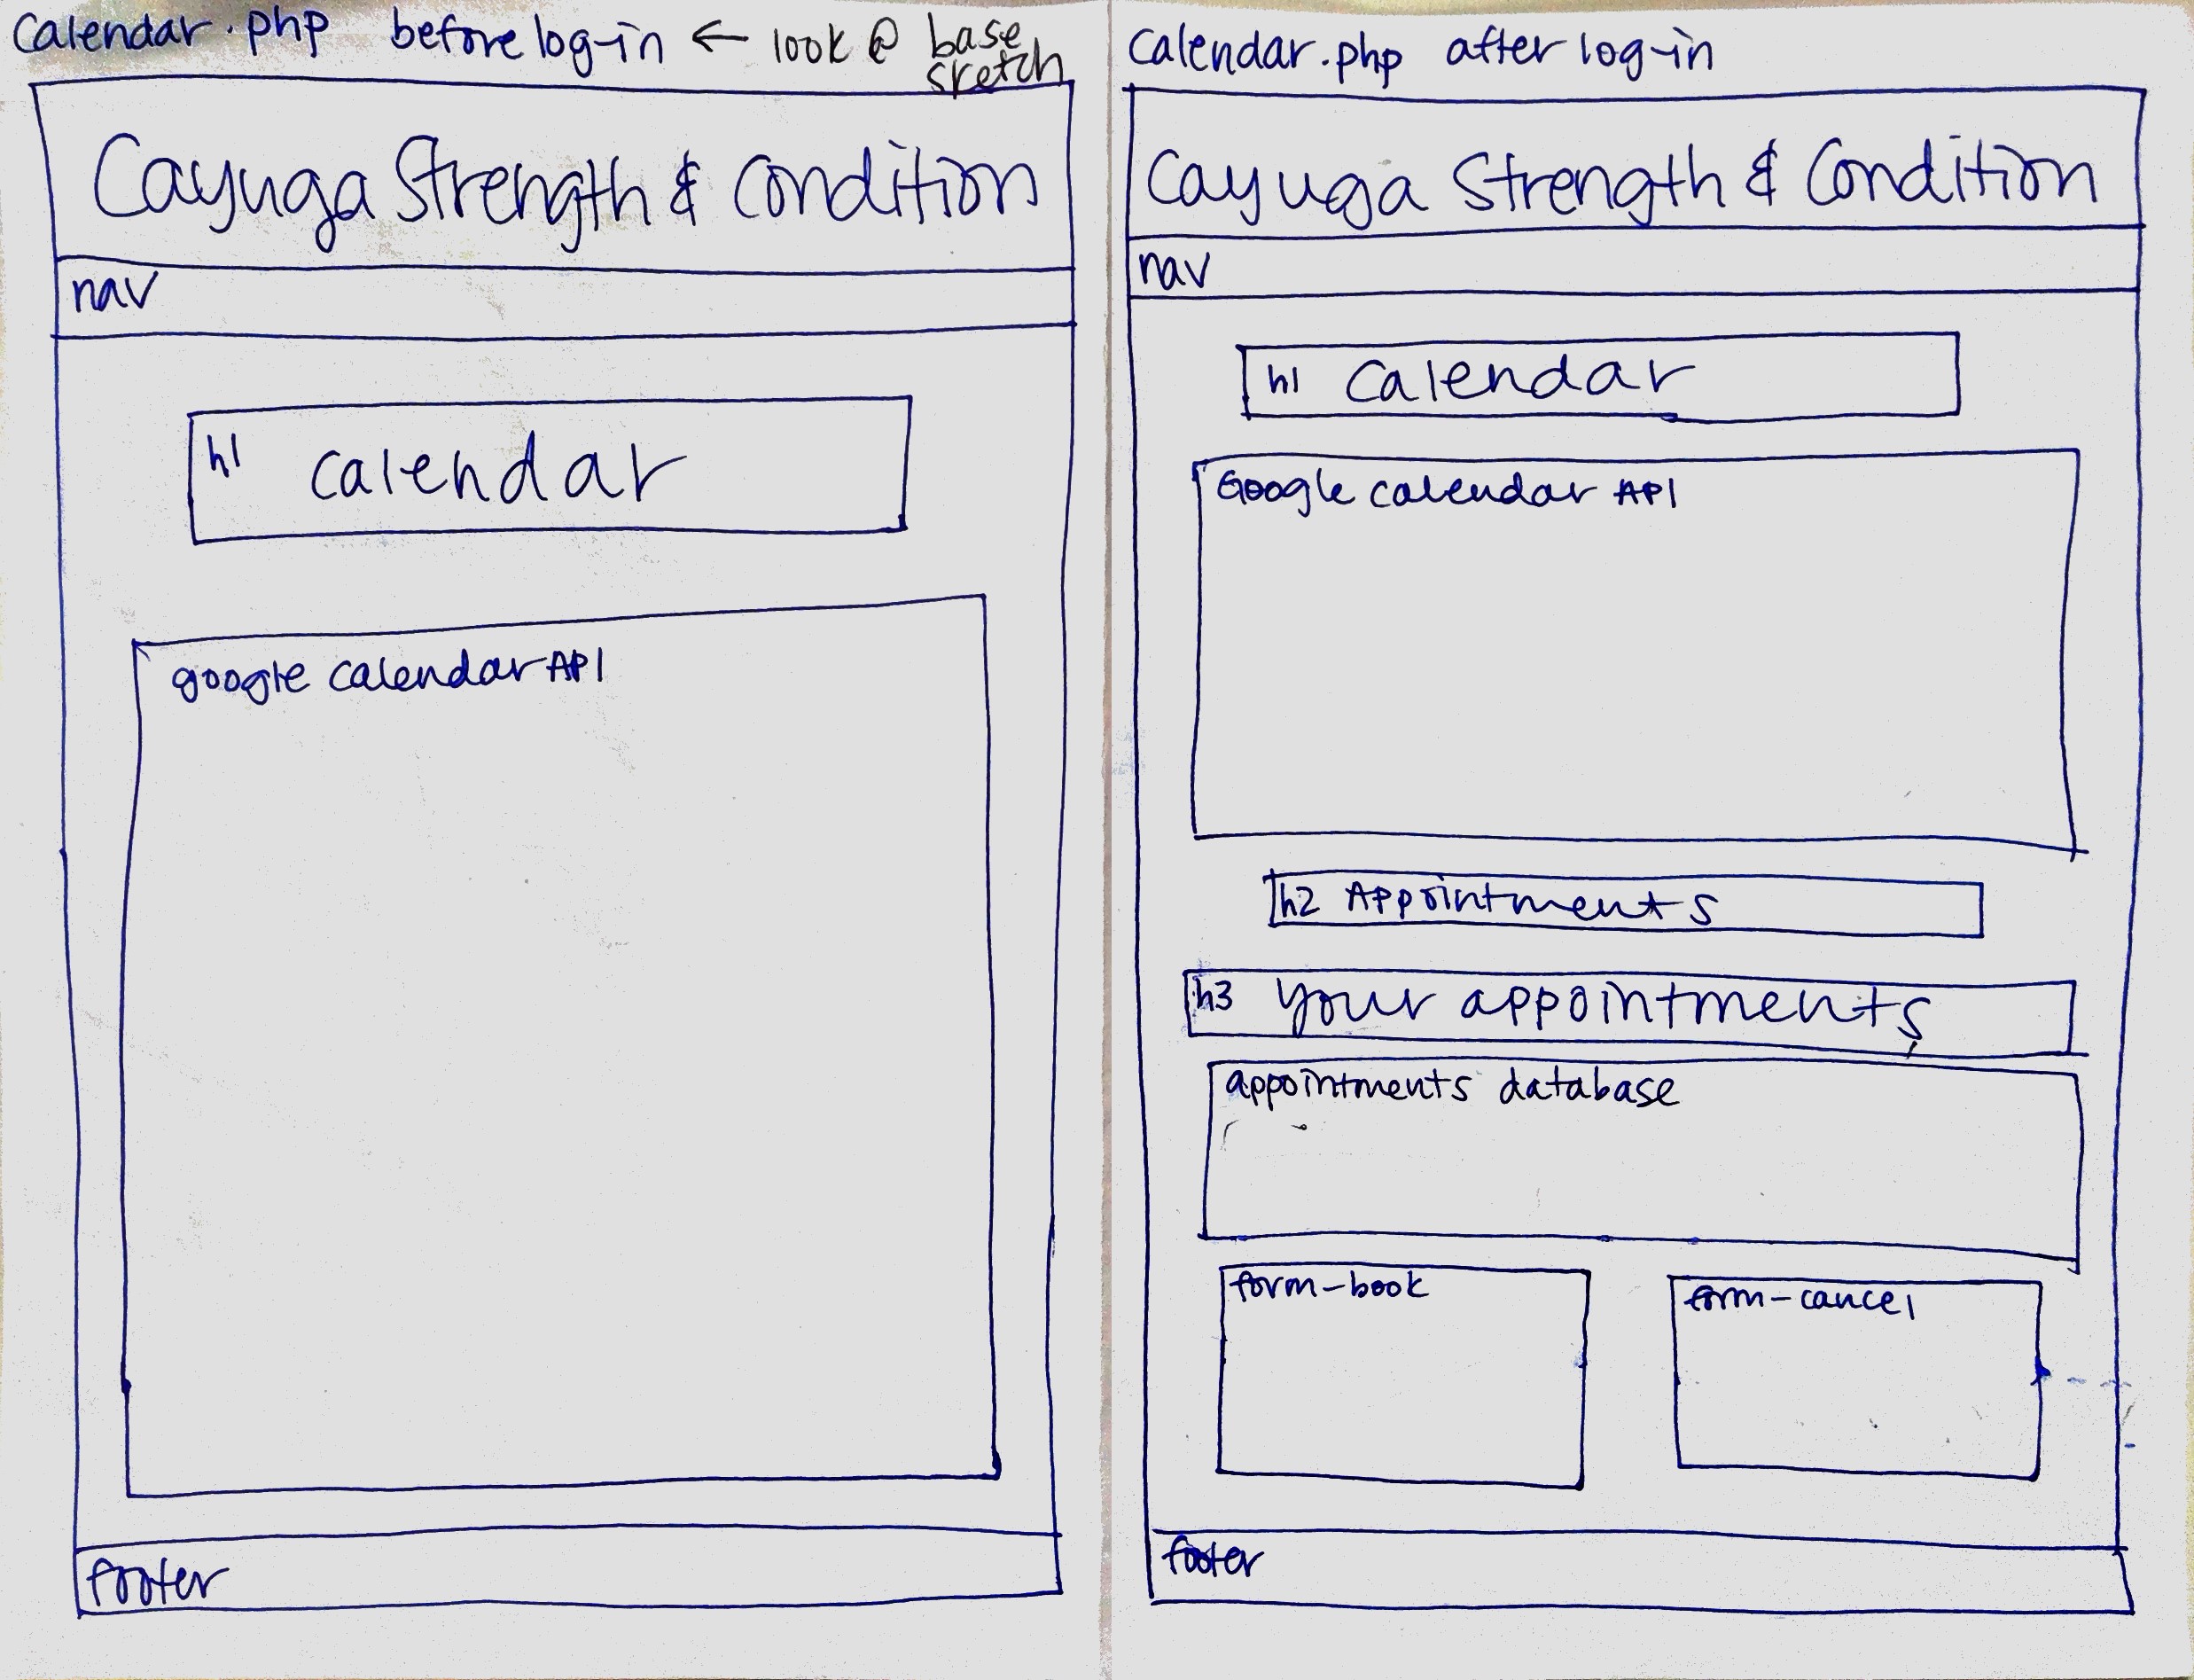 calendar.php before log-in ← look @ base
sketch
Cayuga Strength & Condition
nav
h1 calendar
google calendar API
footer
calendar.php after log-in
Cayuga Strength & Condition
nav
h1 calendar
Google calendar API
h2 Appointments
h3 your appointments
appointments database
form-book
form-cancel
footer